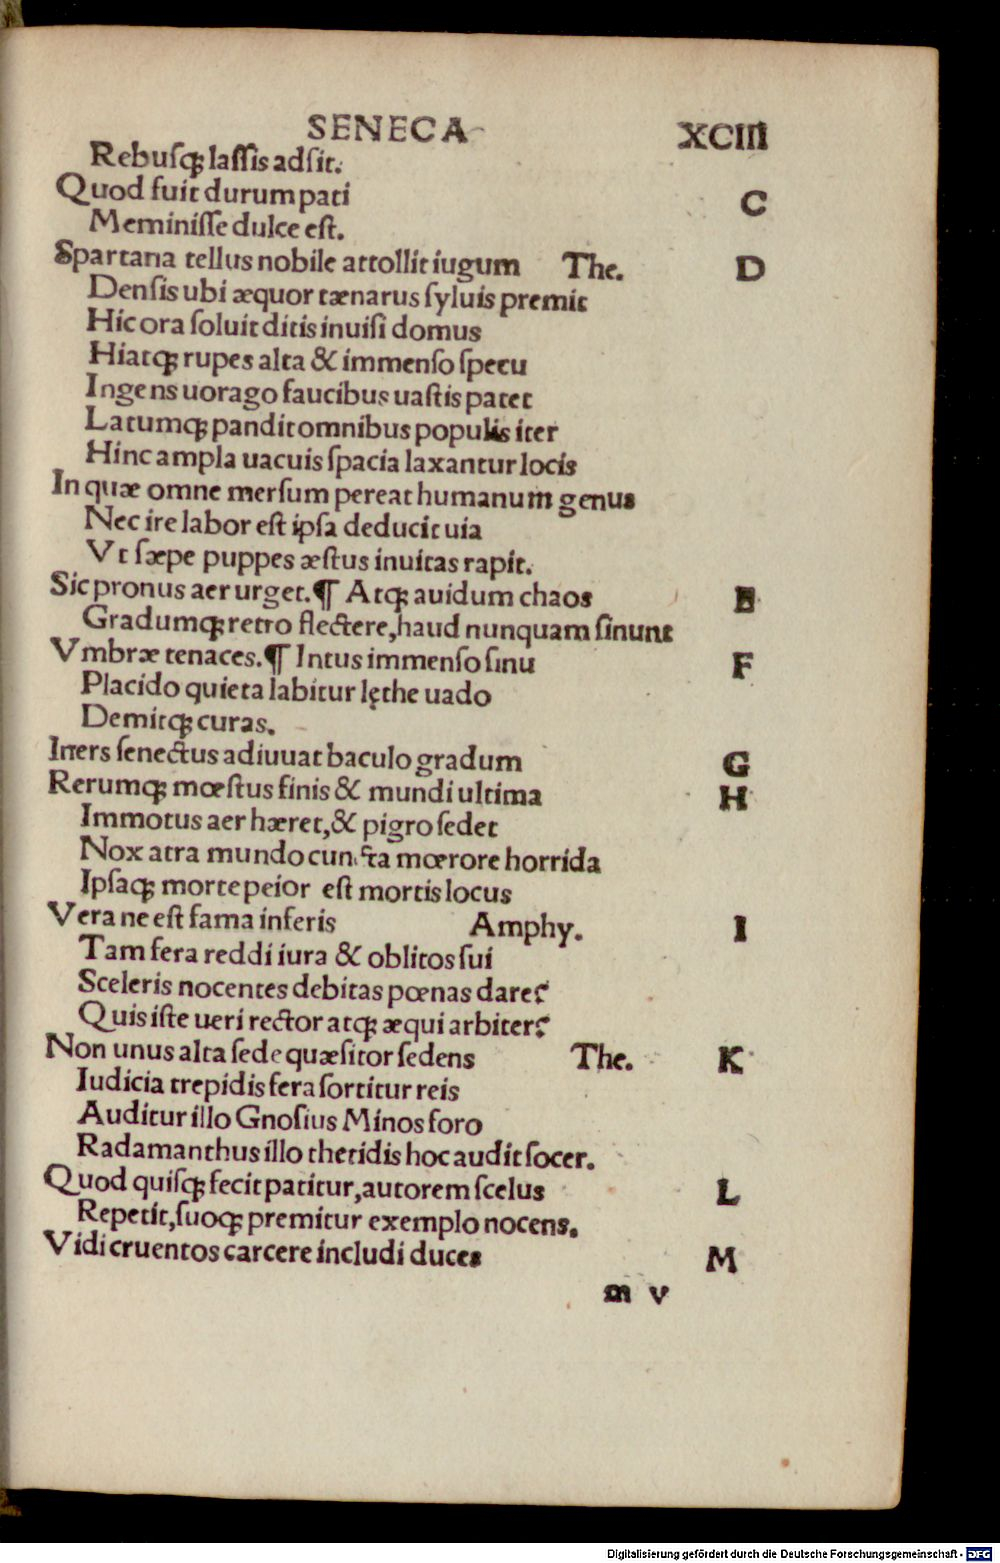 SENECA XCIII
Rebusq; lassis adsit.
Quod fuit durum pati C
Meminisse dulce est.
Spartana tellus nobile attollit iugum The. D
Densis ubi æquor tænarus syluis premit
Hic ora soluit ditis inuisi domus
Hiatq; rupes alta & immenso specu
Ingens uorago faucibus uastis patet
Latumq; pandit omnibus populis iter
Hinc ampla uacuis spacia laxantur locis
In quæ omne mersum pereat humanum genus
Nec ire labor est ipsa deducit uia
Vt sæpe puppes æstus inuitas rapit.
Sic pronus aer urget.¶ Atq; auidum chaos E
Gradumq; retro flectere, haud nunquam sinunt
Vmbræ tenaces.¶ Intus immenso sinu F
Placido quieta labitur lęthe uado
Demitq; curas.
Iners senectus adiuuat baculo gradum G
Rerumq; mœstus finis & mundi ultima H
Immotus aer hæret, & pigro sedet
Nox atra mundo cuncta mœrore horrida
Ipsaq; morte peior est mortis locus
Vera ne est fama inferis Amphy. I
Tam fera reddi iura & oblitos sui
Sceleris nocentes debitas pœnas dare?
Quis iste ueri rector atq; æqui arbiter?
Non unus alta sede quæsitor sedens The. K
Iudicia trepidis fera sortitur reis
Auditur illo Gnosius Minos foro
Radamanthus illo thetidis hoc audit socer.
Quod quisq; fecit patitur, autorem scelus L
Repetit, suoq; premitur exemplo nocens.
Vidi cruentos carcere includi duces M
m v
Digitalisierung gefördert durch die Deutsche Forschungsgemeinschaft - DFG